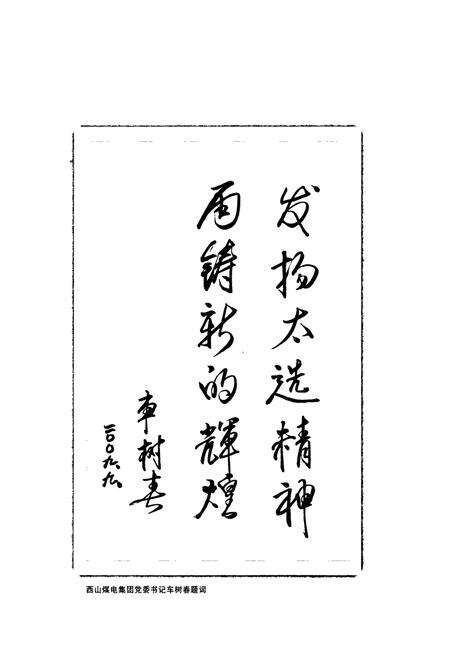 发扬太选精神
再铸新的輝煌
車树春
二〇〇九.九.
西山煤电集团党委书记车树春题词